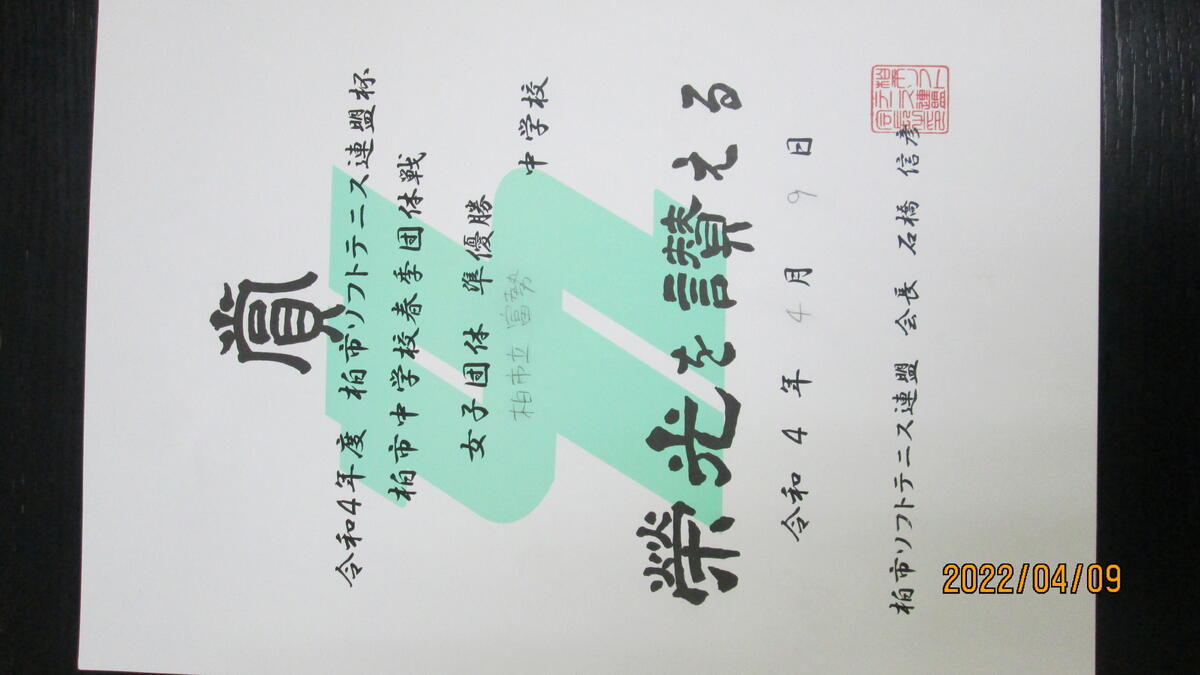 賞
令和4年度 柏市ソフトテニス連盟杯
柏市中学校春季団体戦
女子団体 準優勝
柏市立 富勢 中学校
榮光を讃える
令和 4 年 4 月 9 日
柏市ソフトテニス連盟 会長 石橋 信彦
2022/04/09